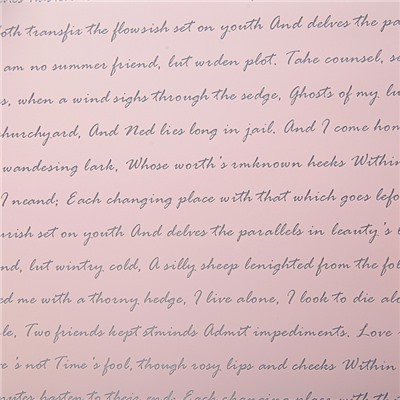 oth transfix the flowsish set on youth And delves the pa
am no summer friend, but wrden plot. Take counsel, s
s, when a wind sighs through the sedge, Ghosts of my lu
hurchyard, And Ned lies long in jail. And I come hom
wandesing lark, Whose worth's rmknown heeks Within
I neand; Each changing place with that which goes lefo
urish set on youth And delves the parallels in leauty's l
nd, but wintry cold, A silly sheep lenighted from the fol
ed me with a thorny hedge, I live alone, I look to die alo
le, Two friends kept stminds Admit impediments. Love
e's not Time's fool, though rosy lips and cheeks Within
nutes hasten to their end; Each changing place with that